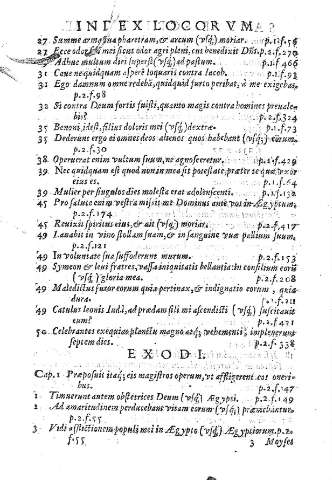 INDEX LOCORVM
27 Summe arma tua pharetram, & arcum (vsq;) moriar. p.1.f.56
27 Ecce odor filij mei sicut odor agri pleni, cui benedixit Dñs. p.2.f.270
Adhuc multum diei superest (vsq;) ad pastum. p.1.f.466
31 Caue ne quidquam asperè loquaris contra Iacob. p.1.f.93
31 Ego damnum omne redebã, quidquid furto peribat, à me exigebas,
p.2.f.98
32 Si contra Deum fortis fuisti, quanto magis contra homines preuale-
bis? p.2.f.324
35 Benoni, id est, filius doloris mei (vsq;) dextræ. p.1.f.73
35 Dederunt ergo ei omnes deos alienos quos habebant (vsq;) eorum.
p.2.f.30
38 Operuerat enim vultum suum, ne agnosceretur. p.1.f.429
39 Nec quidquam est quod non in mea sit potestate, præter te quæ vxor
eius es. p.1.f.64
39 Mulier per singulos dies molesta erat adolescenti. p.1.f.132
45 Pro salute enim vestra misit me Dominus ante vos in Ægyptum,
p.2.f.174
45 Reuixit spiritus eius, & ait (vsq;) moriar. p.2.f.417
49 Lauabit in vino stollam suam, & in sanguine vuæ pallium suum,
p.2.f.121
49 In voluntate sua suffoderunt murum. p.2.f.153
49 Symeon & leui fratres, vassa iniquitatis bellantia: in consilium eorũ
(vsq;) gloria mea. p.2.f.208
49 Maledictus furor eorum quia pertinax, & indignatio eorum, quia
dura. p.1.f.211
49 Catulus leonis Iudà, ad prædam fili mi ascendisti (vsq;) suscitauit
eum? p.2.f.421
50. Celebrantes exequias planctu magno atq; vehementi, impleuerunt
septem dies. p.2.f.338
EXODI.
Cap. 1 Præposuit itaq; eis magistros operum, vt affligerent eos oneri-
bus. p.2.f.147
1 Timuerunt autem obstetrices Deum (vsq;) Ægypti. p.2.f.149
2 Ad amaritudinem perducebant vitam eorum (vsq;) præmebantur.
p.2.f.55
3 Vidi afflictionem populi mei in Ægypto (vsq;) Ægyptiorum. p.2.
f.55
3 Moyses